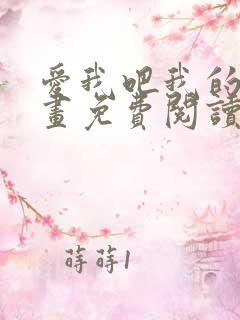 愛我吧我的
畫免費閱讀
蒔蒔1